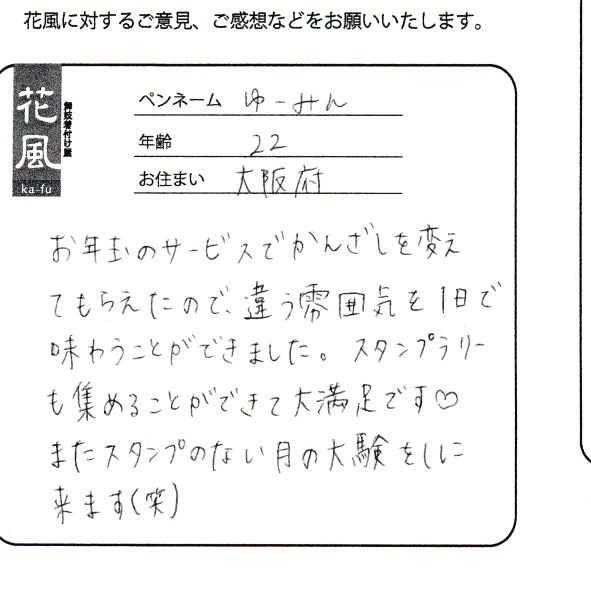 花風に対するご意見、ご感想などをお願いいたします。
花風
舞妓着付け屋
ka-fu
ペンネーム ゆーみん
年齢 22
お住まい 大阪府
お年玉のサービスでかんざしを変え
てもらえたので、違う雰囲気を1日で
味わうことができました。スタンプラリー
も集めることができて大満足です♡
またスタンプのない月の大験をしに
来ます(笑)